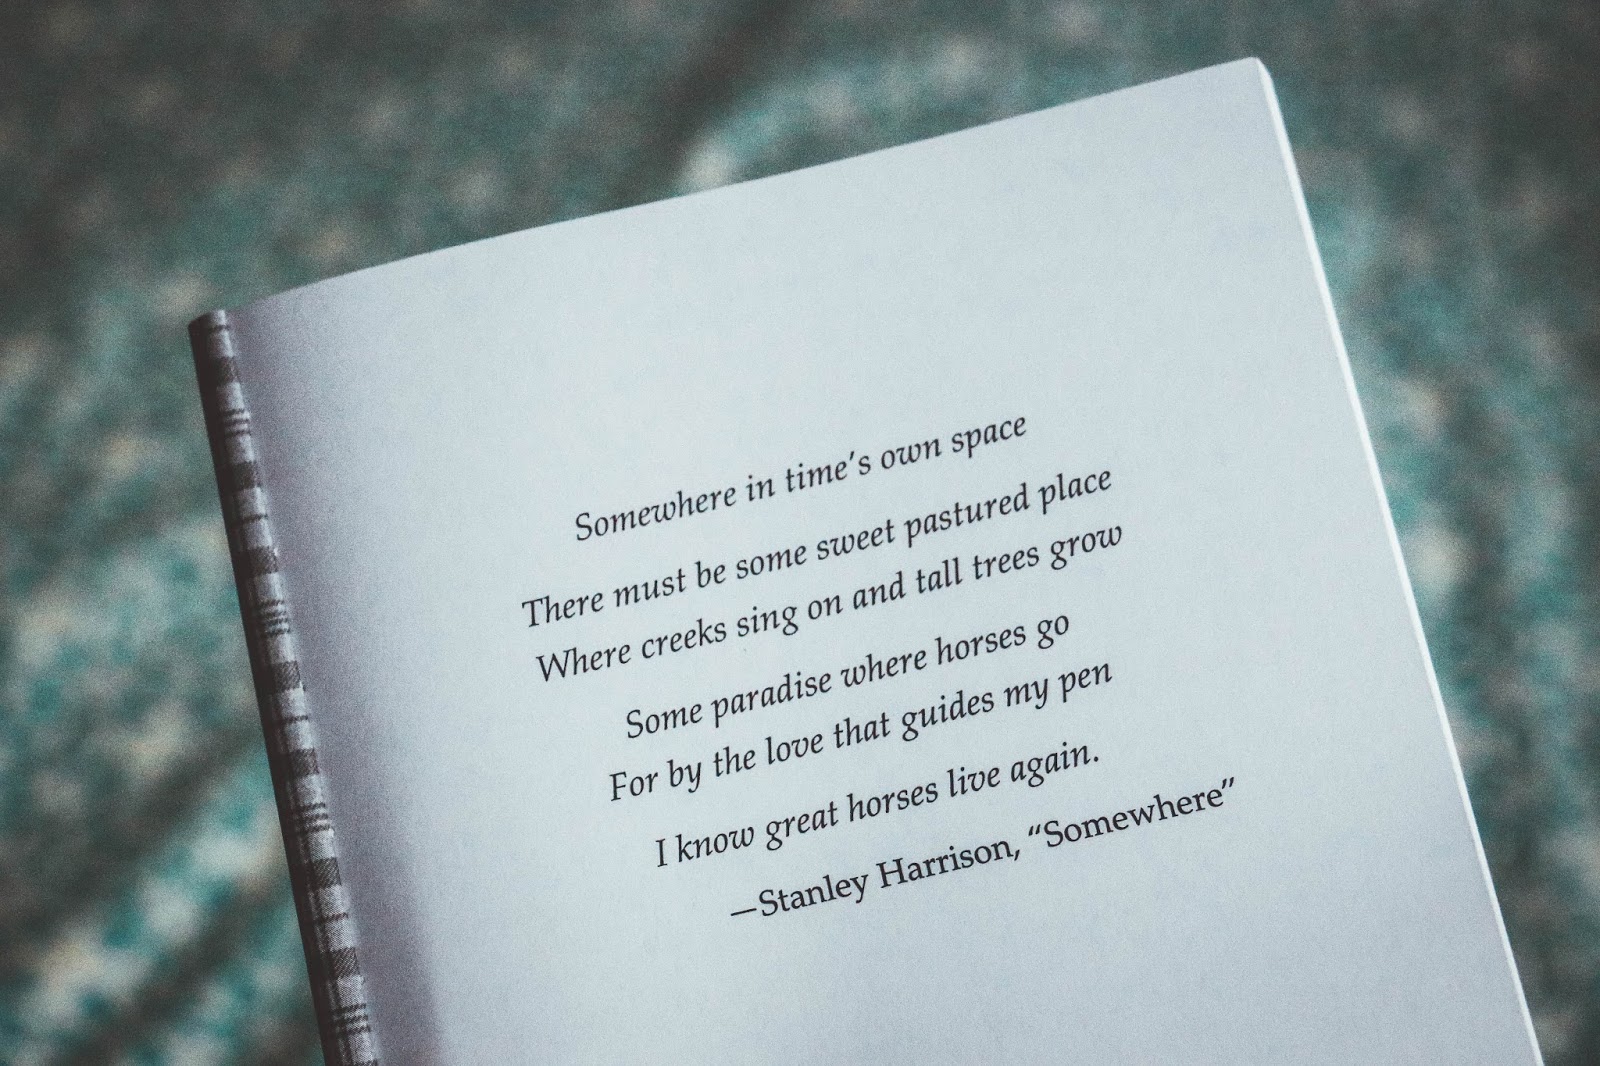 Somewhere in time's own space
There must be some sweet pastured place
Where creeks sing on and tall trees grow
Some paradise where horses go
For by the love that guides my pen
I know great horses live again.
—Stanley Harrison, “Somewhere”